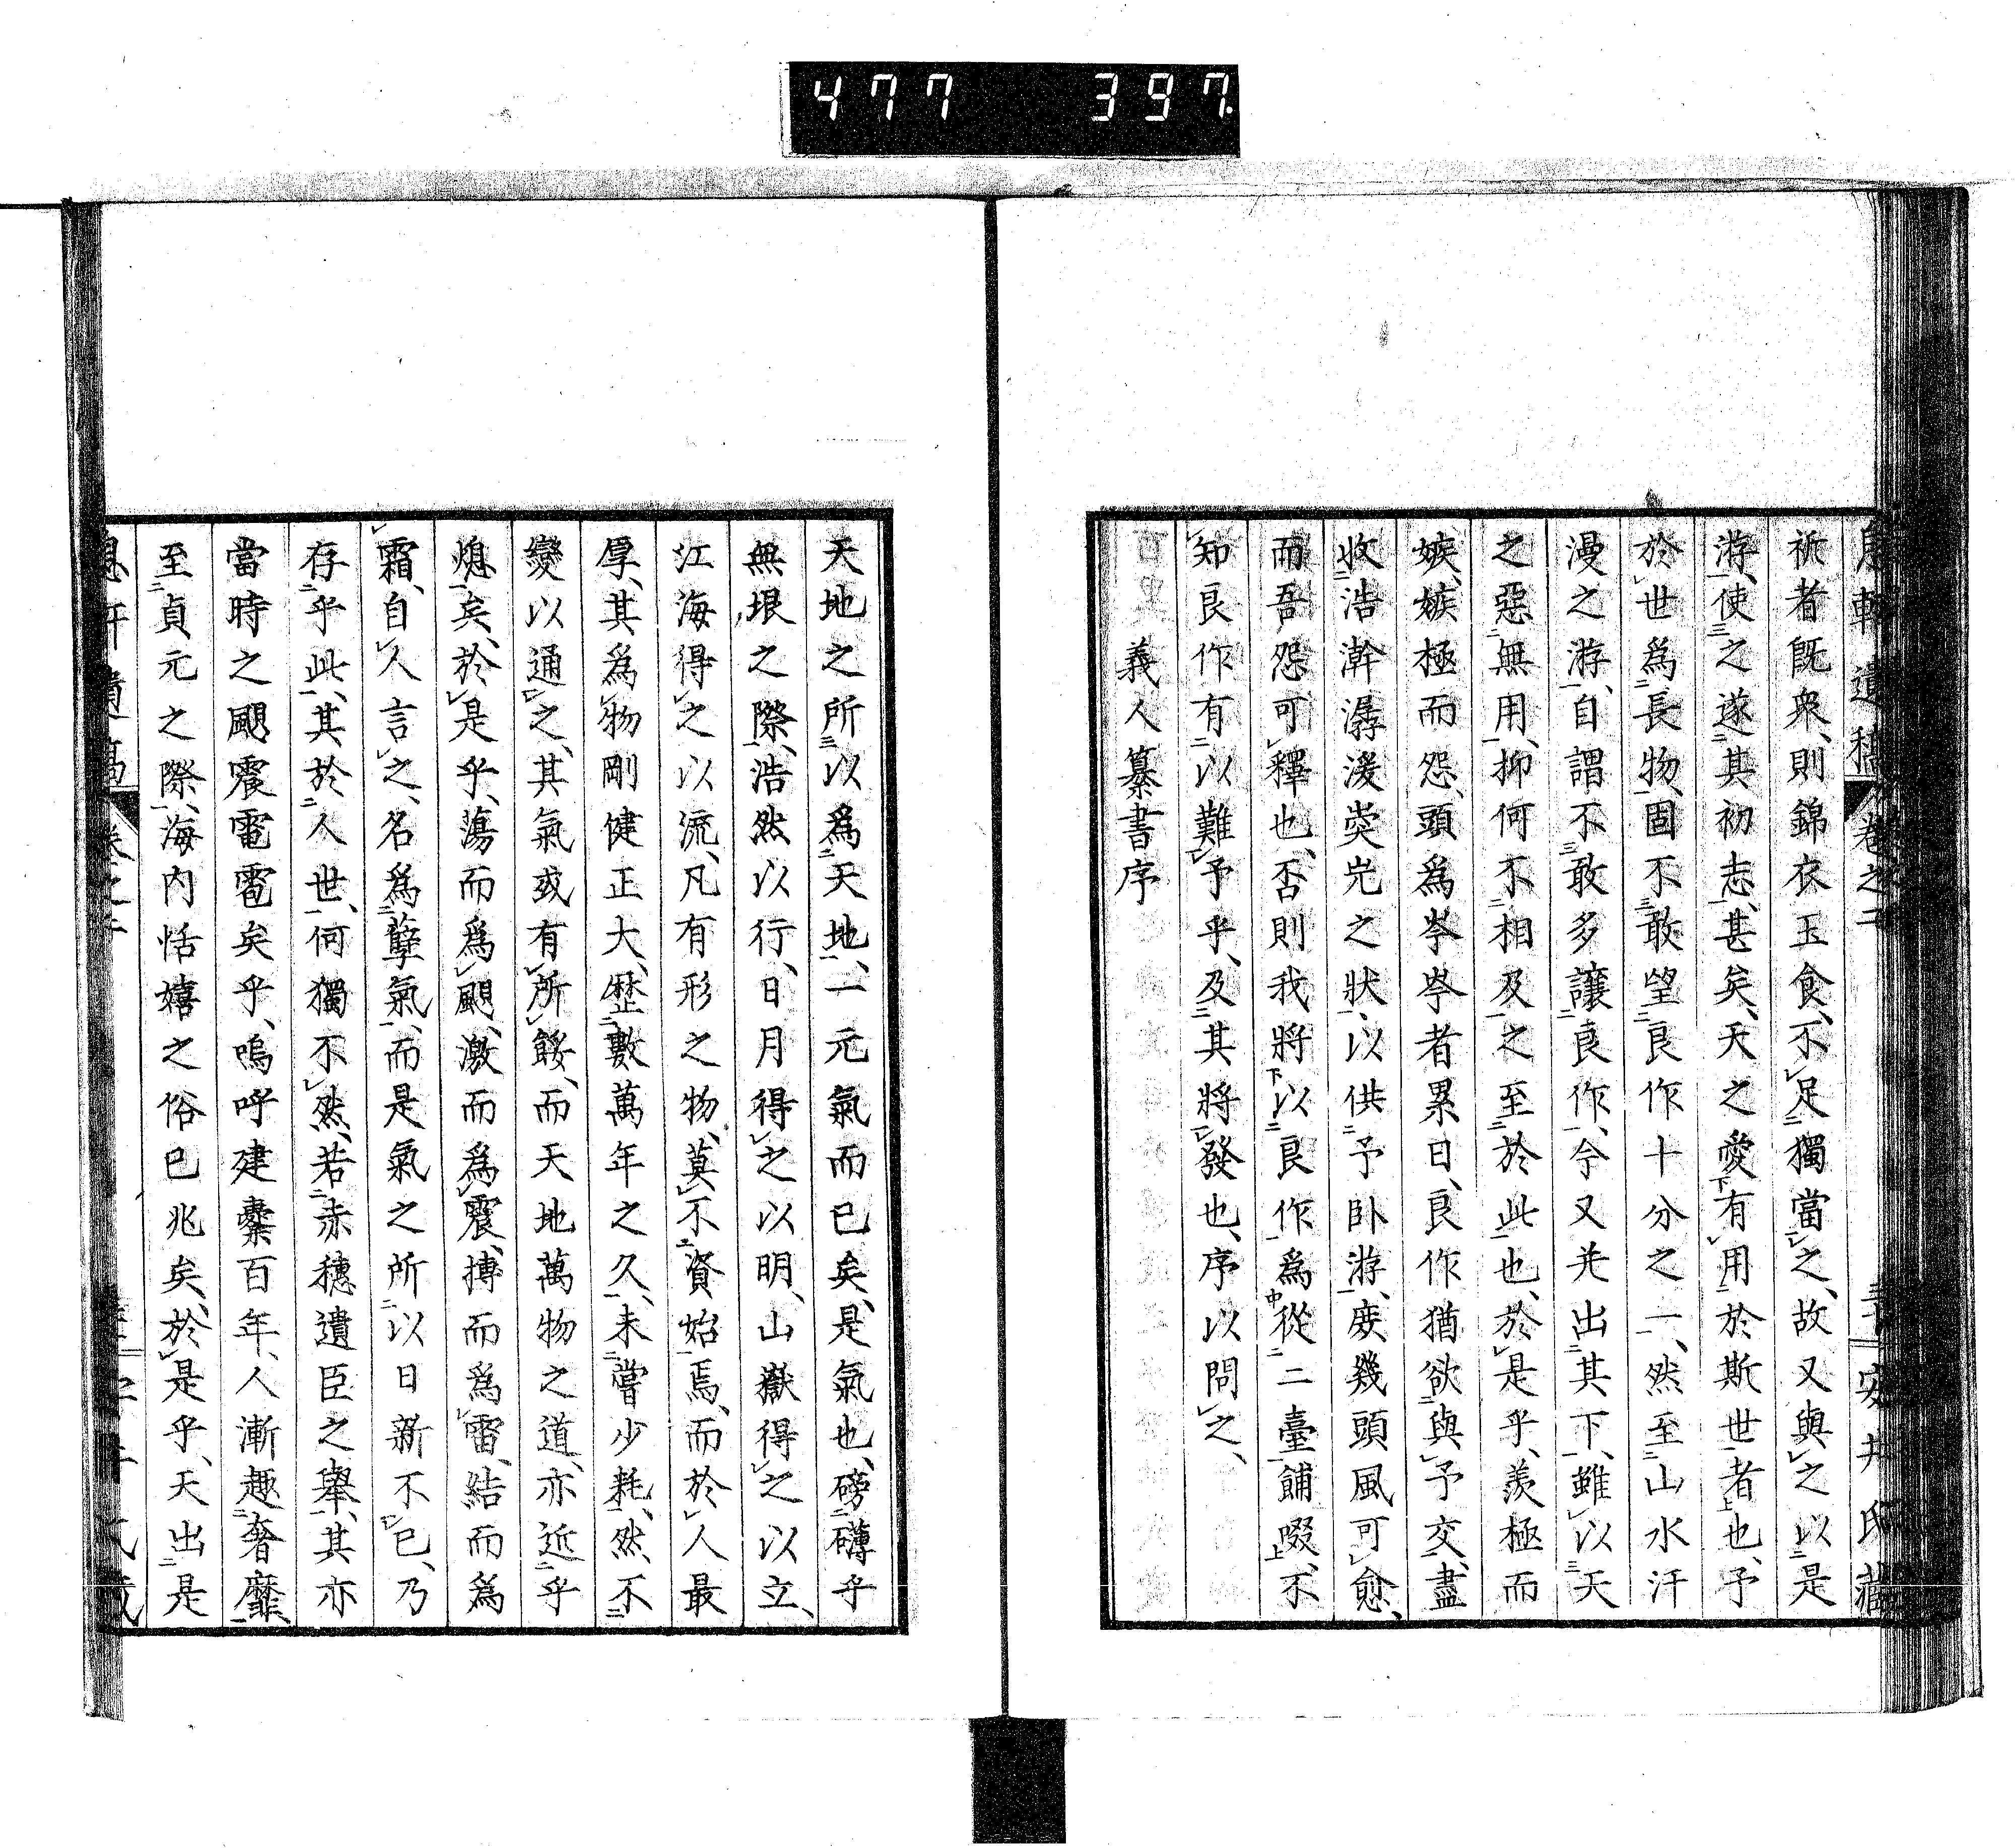 477 397
息軒遺稿 卷之二 安井氏藏
祈者既衆、則錦衣玉食、不足獨當之、故又與之以是
游、使之遂其初志、甚矣、天之愛有用於斯世者也、予
於世爲長物、固不敢望良作十分之一、然至山水汗
漫之游、自謂不敢多讓良作、今又并出其下、雖以天
之惡無用、抑何不相及之至於此也、於是乎、羨極而
嫉、嫉極而怨、頭爲岑岑者累日、良作猶欲與予交、盡
收浩澣潺湲突兀之狀、以供予臥游、庶幾頭風可愈、
而吾怨可釋也、否則我將以良作爲從二臺餔啜、不
知良作有以難予乎、及其將發也、序以問之、
義人纂書序
天地之所以爲天地、一元氣而已矣、是氣也、磅礴乎
無垠之際、浩然以行、日月得之以明、山嶽得之以立、
江海得之以流、凡有形之物、莫不資始焉、而於人最
厚、其爲物剛健正大、歷數萬年之久、未嘗少耗、然不
變以通之、其氣或有所餒、而天地萬物之道、亦近乎
熄矣、於是乎、蕩而爲颶、激而爲震、搏而爲雷、結而爲
霜、自人言之、名爲孽氣、而是氣之所以日新不已、乃
存乎此、其於人世、何獨不然、若赤穗遺臣之舉、其亦
當時之颶震電雹矣乎、嗚呼建櫜百年、人漸趣奢靡、
至貞元之際、海內恬嬉之俗已兆矣、於是乎、天出是
息軒遺稿 卷之二